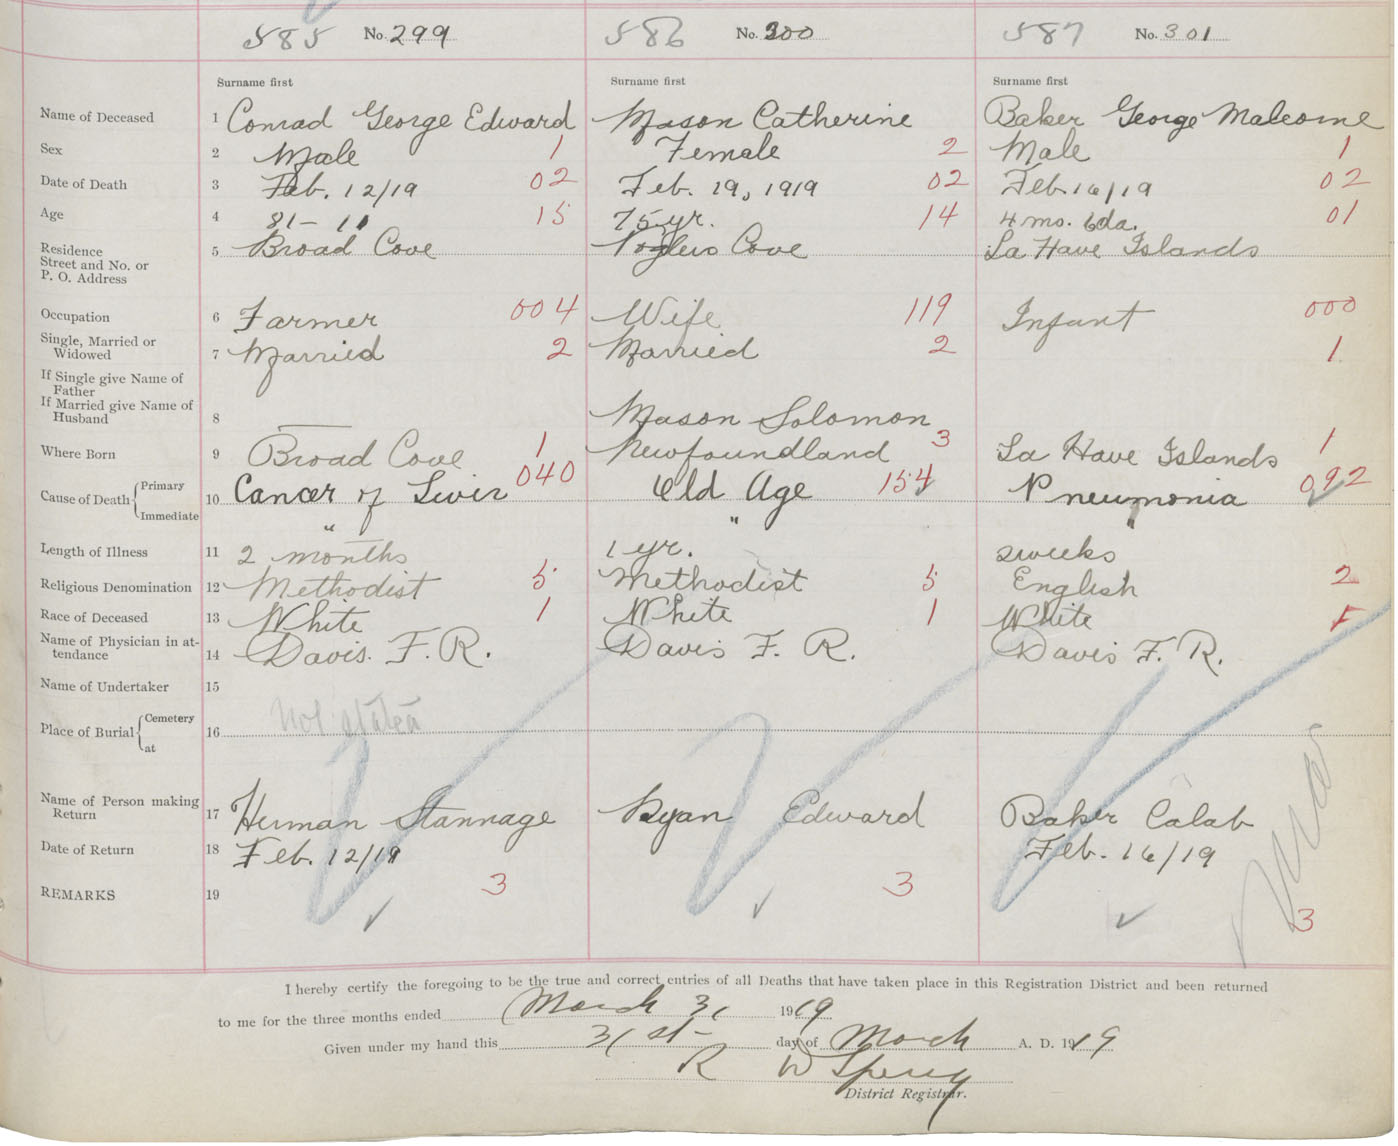 585 No. 299 586 No. 300 587 No. 301
Surname first Surname first Surname first
Name of Deceased 1 Conrad George Edward Mason Catherine Baker George Malcome
Sex 2 Male 1 Female 2 Male 1
Date of Death 3 Feb. 12/19 02 Feb. 19, 1919 02 Feb 16/19 02
Age 4 81-11 15 75 yr. 14 4 mo. 6 da. 01
Residence
Street and No. or
P. O. Address
5 Broad Cove Cove La Have Islands
Occupation 6 Farmer 004 Wife 119 Infant 000
Single, Married or
Widowed 7 Married 2 Married 2 1
If Single give Name of
Father
If Married give Name of
Husband 8 Mason Solomon
Where Born 9 Broad Cove 1 Newfoundland 3 La Have Islands 1
Cause of Death Primary 10 Cancer of Liver 040 Old Age 154 Pneumonia 092
Immediate " " "
Length of Illness 11 2 months 1 yr. 2 weeks
Religious Denomination 12 Methodist 5 Methodist 5 English 2
Race of Deceased 13 White 1 White 1 White 1
Name of Physician in at-
tendance 14 Davis. F. R. Davis F. R. Davis F. R.
Name of Undertaker 15
Place of Burial Cemetery 16 Not stated
at
Name of Person making
Return 17 Herman Stannage Ryan Edward Baker Calab
Date of Return 18 Feb. 12/19 Feb. 16/19
REMARKS 19 3 3 3
I hereby certify the foregoing to be the true and correct entries of all Deaths that have taken place in this Registration District and been returned
to me for the three months ended March 31 1919
Given under my hand this 31st day of March A. D. 1919
R W Sperry
District Registrar.